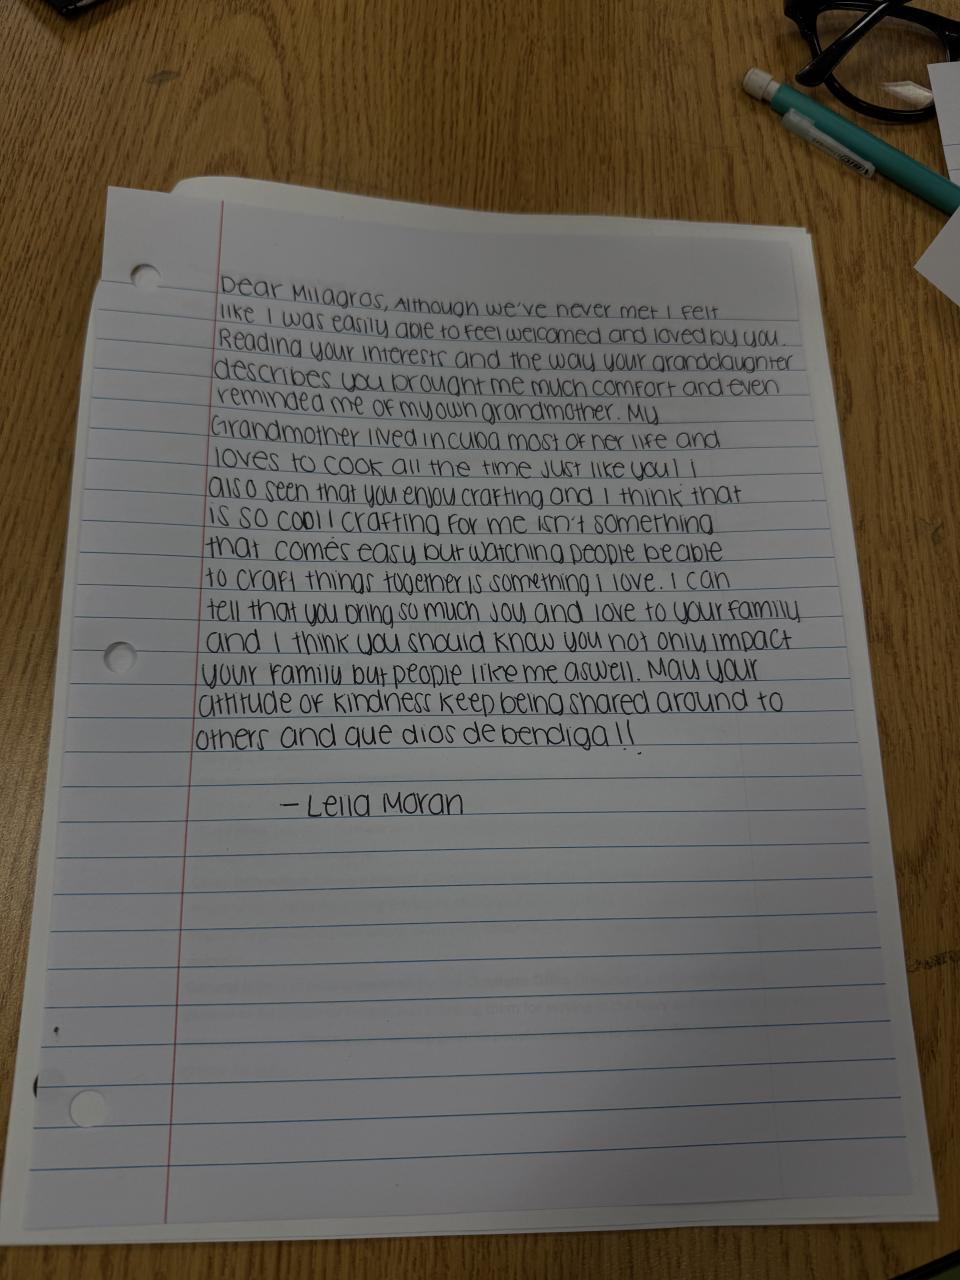 Dear Milagros, Although we've never met I felt
like I was easily able to feel welcomed and loved by you.
Reading your interests and the way your granddaughter
describes you brought me much comfort and even
reminded me of my own grandmother. My
Grandmother lived in cuba most of her life and
loves to cook all the time just like you! I
also seen that you enjoy crafting and I think that
is so cool! Crafting for me isn't something
that comes easy but watching people be able
to craft things together is something I love. I can
tell that you bring so much joy and love to your family
and I think you should know you not only impact
your family but people like me aswell. May your
attitude of kindness keep being shared around to
others and que dios de bendiga!!
- Leila Moran